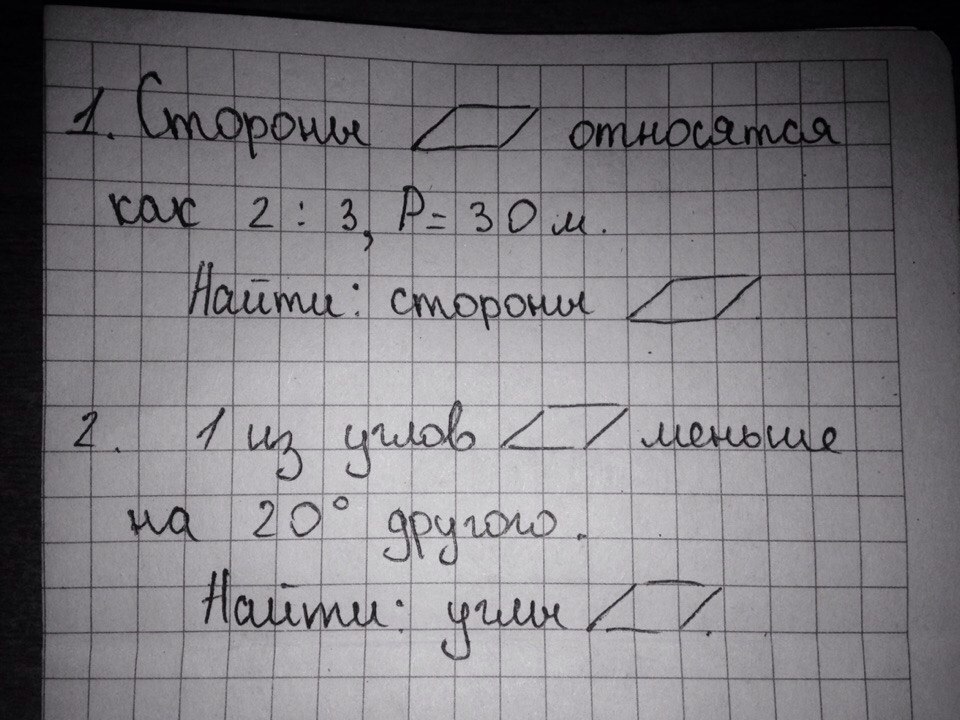 1. Стороны ▱ относятся
как 2 : 3, P = 30 м.
Найти: стороны ▱.
2. 1 из углов ▱ меньше
на 20° другого.
Найти: углы ▱.